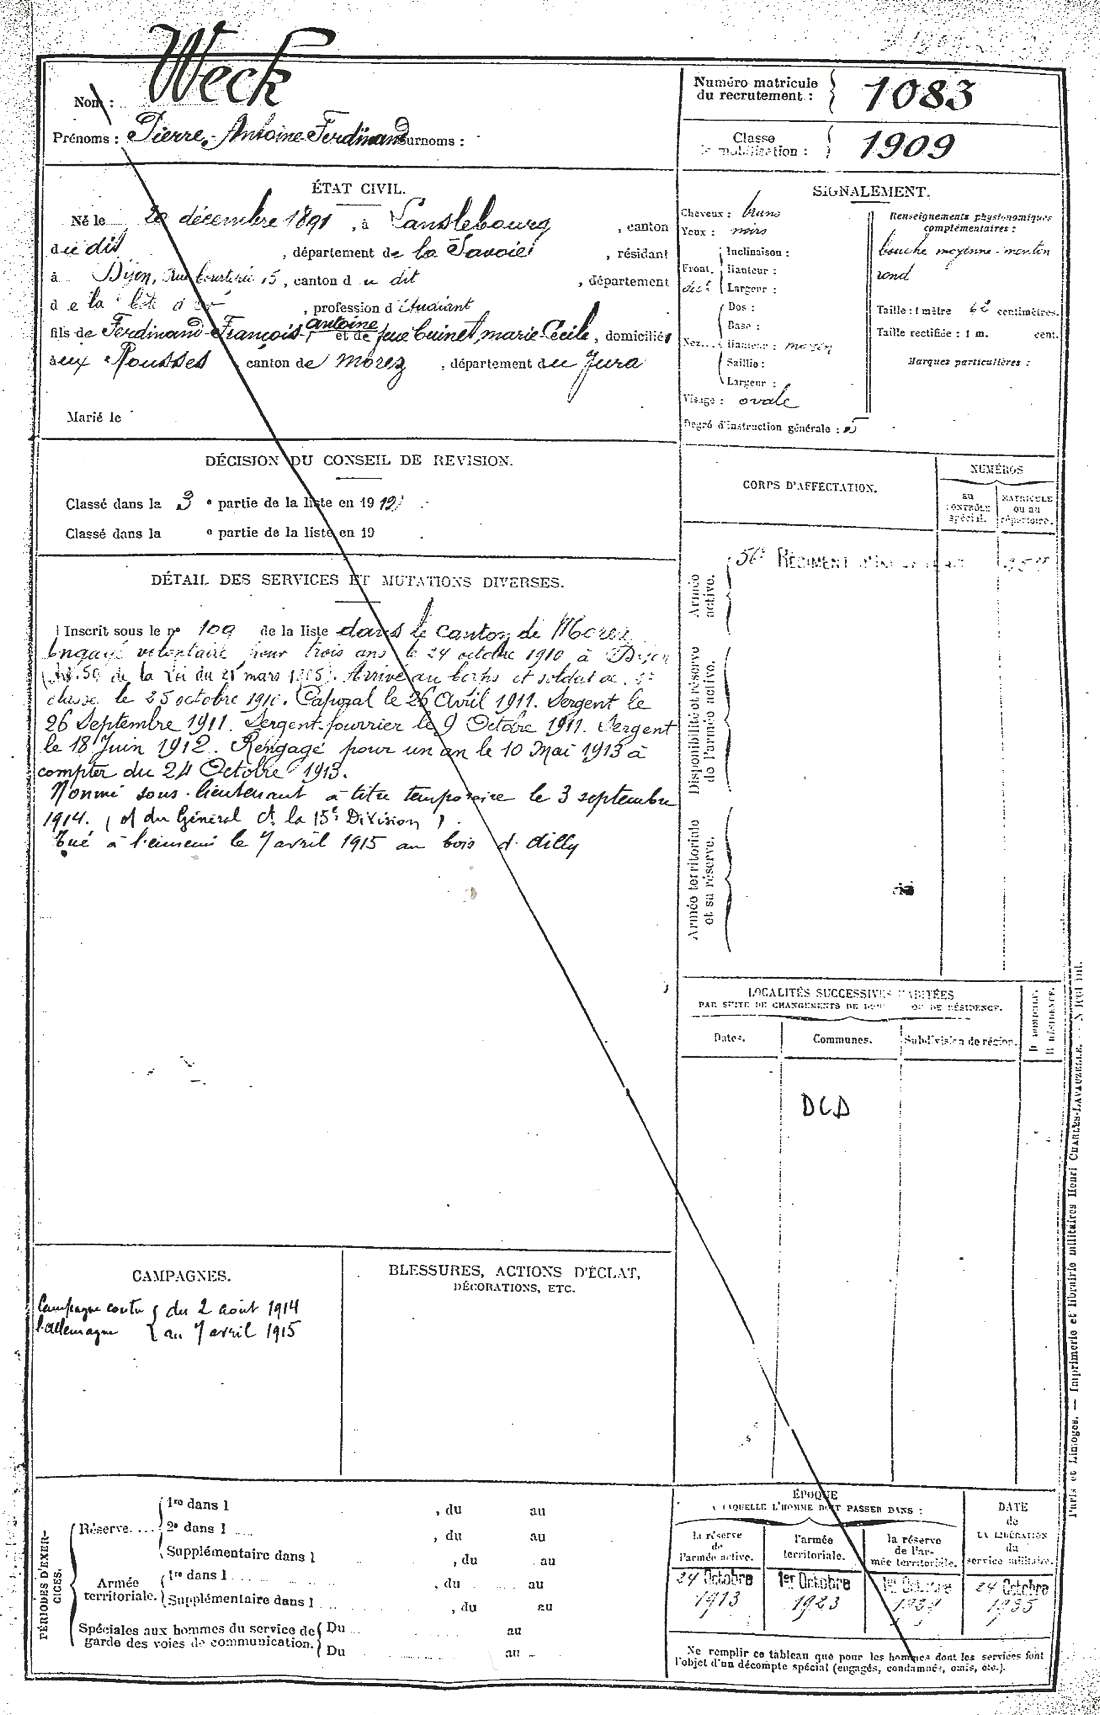 Weck
Nom :
Prénoms : Pierre-Antoine-Ferdinand Surnoms :
Numéro matricule du recrutement : 1083
Classe de mobilisation : 1909
ÉTAT CIVIL.
Né le 20 décembre 1891, à Lanslebourg, canton
du dit, département de la Savoie, résidant
à Dijon, rue 15, canton du dit, département
de la Côte d'or, profession d'étudiant
fils de Ferdinand-François-Antoine et de feue Cuinet, marie Cécile, domiciliés
aux Rousses, canton de Morez, département du Jura
Marié le
SIGNALEMENT.
Cheveux : bruns
Yeux : noirs
Front
Inclinaison :
Hauteur :
Largeur :
Nez
Dos :
Base :
Hauteur : moyen
Saillie :
Largeur :
Visage : ovale
Degré d'instruction générale : 5
Renseignements physionomiques complémentaires :
bouche moyenne - menton
rond
Taille : 1 mètre 62 centimètres.
Taille rectifiée : 1 m. cent.
Marques particulières :
DÉCISION DU CONSEIL DE REVISION.
Classé dans la 3e partie de la liste en 1912
Classé dans la e partie de la liste en 19
DÉTAIL DES SERVICES ET MUTATIONS DIVERSES.
Inscrit sous le no 109 de la liste dans le canton de Morez
Engagé volontaire pour trois ans le 24 octobre 1910 à Dijon
(Art. 50 de la Loi du 21 mars 1905). Arrivé au corps et soldat de 2e
classe le 25 octobre 1910. Caporal le 26 Avril 1911. Sergent le
26 Septembre 1911. Sergent-fourrier le 9 Octobre 1911. Sergent
le 18 Juin 1912. Rengagé pour un an le 10 Mai 1913 à
compter du 24 Octobre 1913.
Nommé sous-lieutenant à titre temporaire le 3 septembre
1914. (du Général Ct la 15e Division).
Tué à l'ennemi le 7 avril 1915 au bois d'Ailly
CORPS D'AFFECTATION.
NUMÉROS
au contrôle spécial.
matricule ou au répertoire.
Armée active.
56e RÉGIMENT D'INFANTERIE
Disponibilité et réserve de l'armée active.
Armée territoriale et sa réserve.
LOCALITÉS SUCCESSIVES HABITÉES
PAR SUITE DE CHANGEMENTS DE DOMICILE OU DE RÉSIDENCE.
Dates.
Communes.
Subdivision de région.
D domicile.
R résidence.
DCD
CAMPAGNES.
Campagne contre l'Allemagne { du 2 août 1914
au 7 avril 1915
BLESSURES, ACTIONS D'ÉCLAT,
DÉCORATIONS, ETC.
PÉRIODES D'EXERCICES.
Réserve....
1re dans l , du au
2e dans l , du au
Supplémentaire dans l , du au
Armée territoriale.
1re dans l , du au
Supplémentaire dans l , du au
Spéciales aux hommes du service de garde des voies de communication.
Du au
Du au
ÉPOQUE
À LAQUELLE L'HOMME DOIT PASSER DANS :
la réserve de l'armée active.
l'armée territoriale.
la réserve de l'armée territoriale.
DATE de LA LIBÉRATION du service militaire.
24 Octobre 1913
1er Octobre 1923
1er Octobre
24 Octobre 1935
Ne remplir ce tableau que pour les hommes dont les services font
l'objet d'un décompte spécial (engagés, condamnés, omis, etc.).
Paris et Limoges. — Imprimerie et librairie militaires Henri CHARLES-LAVAUZELLE.